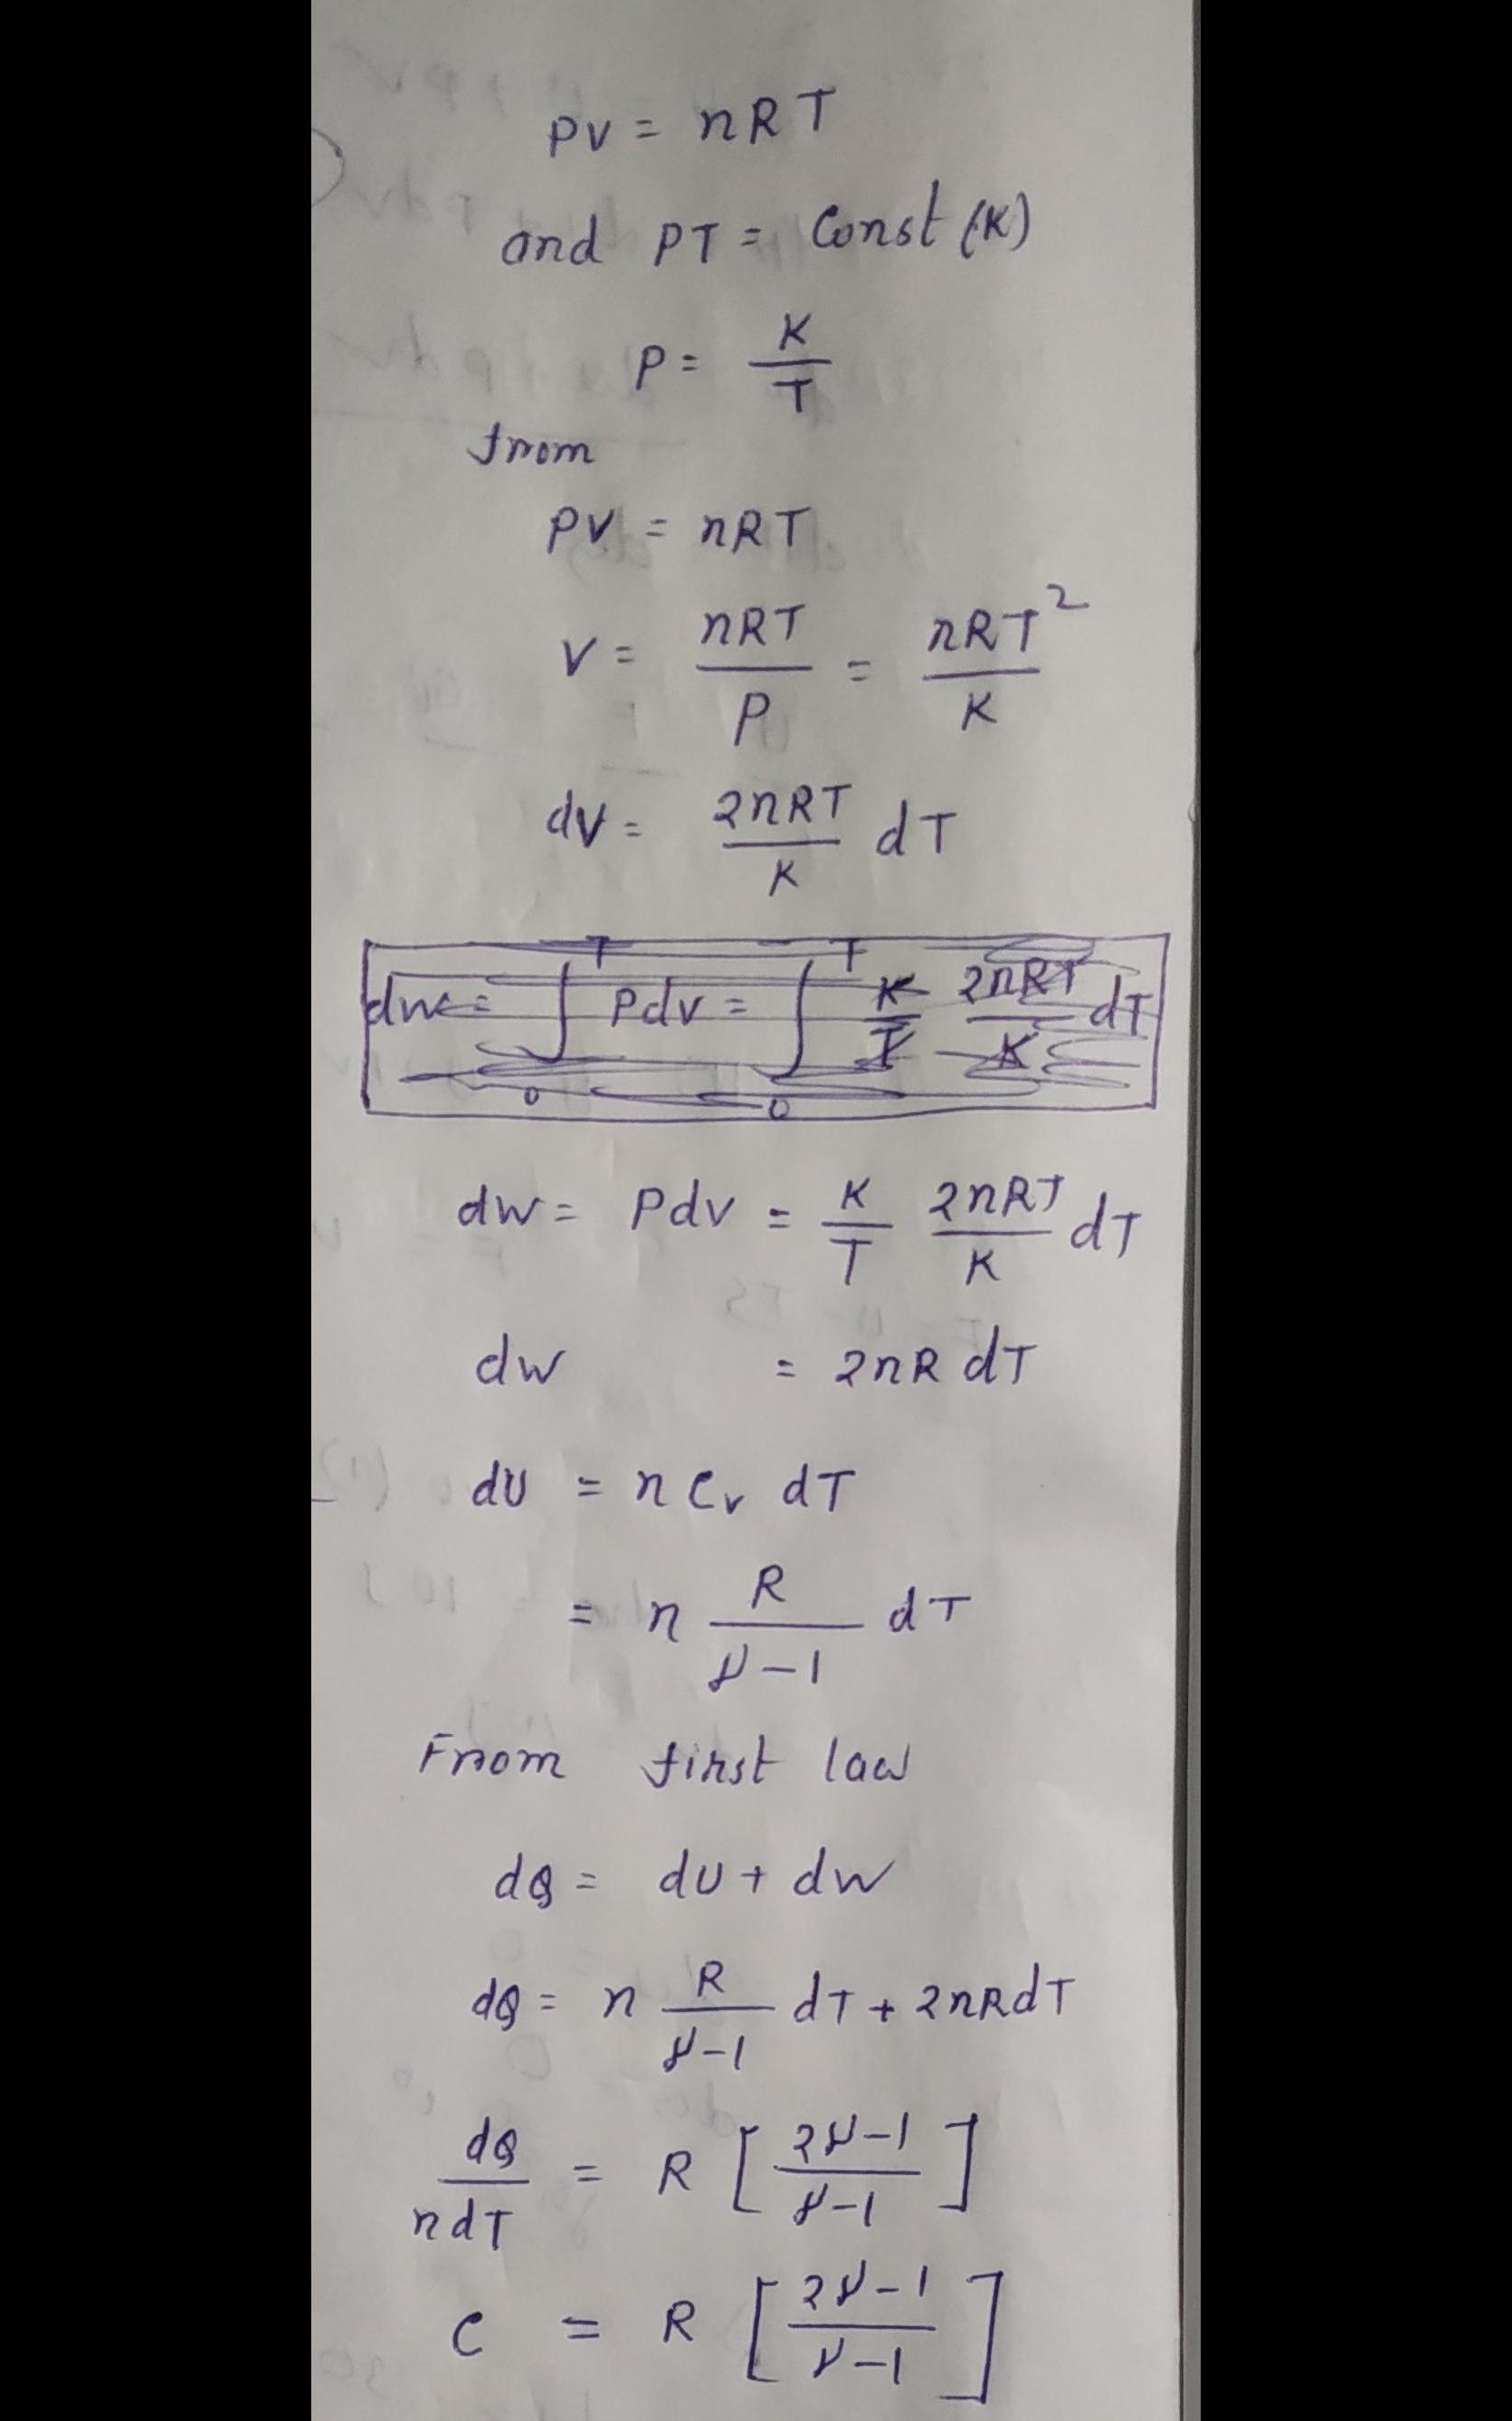 PV = nRT
and PT = Const (K)
P = K/T
from
PV = nRT
V = nRT/P = nRT²/K
dV = 2nRT/K dT
dw = ∫₀ᵀ Pdv = ∫₀ᵀ K/T 2nRT/K dT
dw = Pdv = K/T 2nRT/K dT
dw = 2nR dT
dU = n Cv dT
= n R/γ-1 dT
From first law
dQ = dU + dw
dQ = n R/γ-1 dT + 2nRdT
dQ/ndT = R [2γ-1/γ-1]
C = R [2γ-1/γ-1]